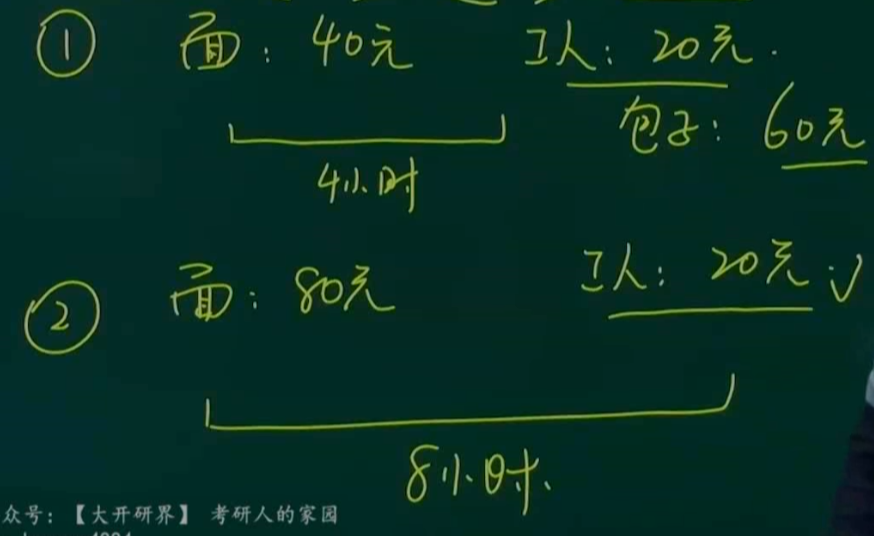 ① 面: 40元 工人: 20元.
包子: 60元
4小时
② 面: 80元 工人: 20元 ✓
8小时.
众号:【大开研界】 考研人的家园